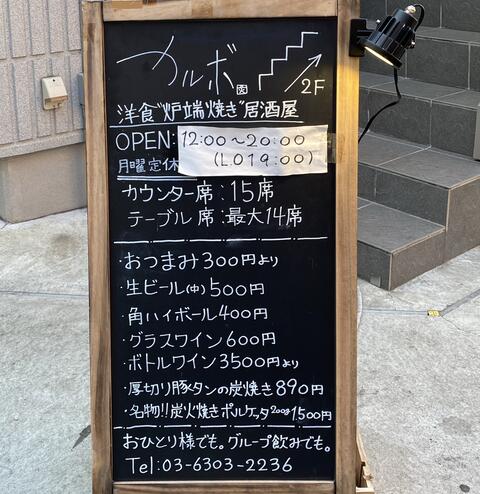 カルボ
2F
洋食"炉端焼き"居酒屋
OPEN: 12:00〜20:00
月曜定休 (L.O19:00)
カウンター席:15席
テーブル席:最大14席
・おつまみ300円より
・生ビール(中)500円
・角ハイボール400円
・グラスワイン600円
・ボトルワイン3500円より
・厚切り豚タンの炭焼き890円
・名物!!炭火焼きポルケッタ200g1,500円
おひとり様でも。グループ飲みでも。
Tel:03-6303-2236